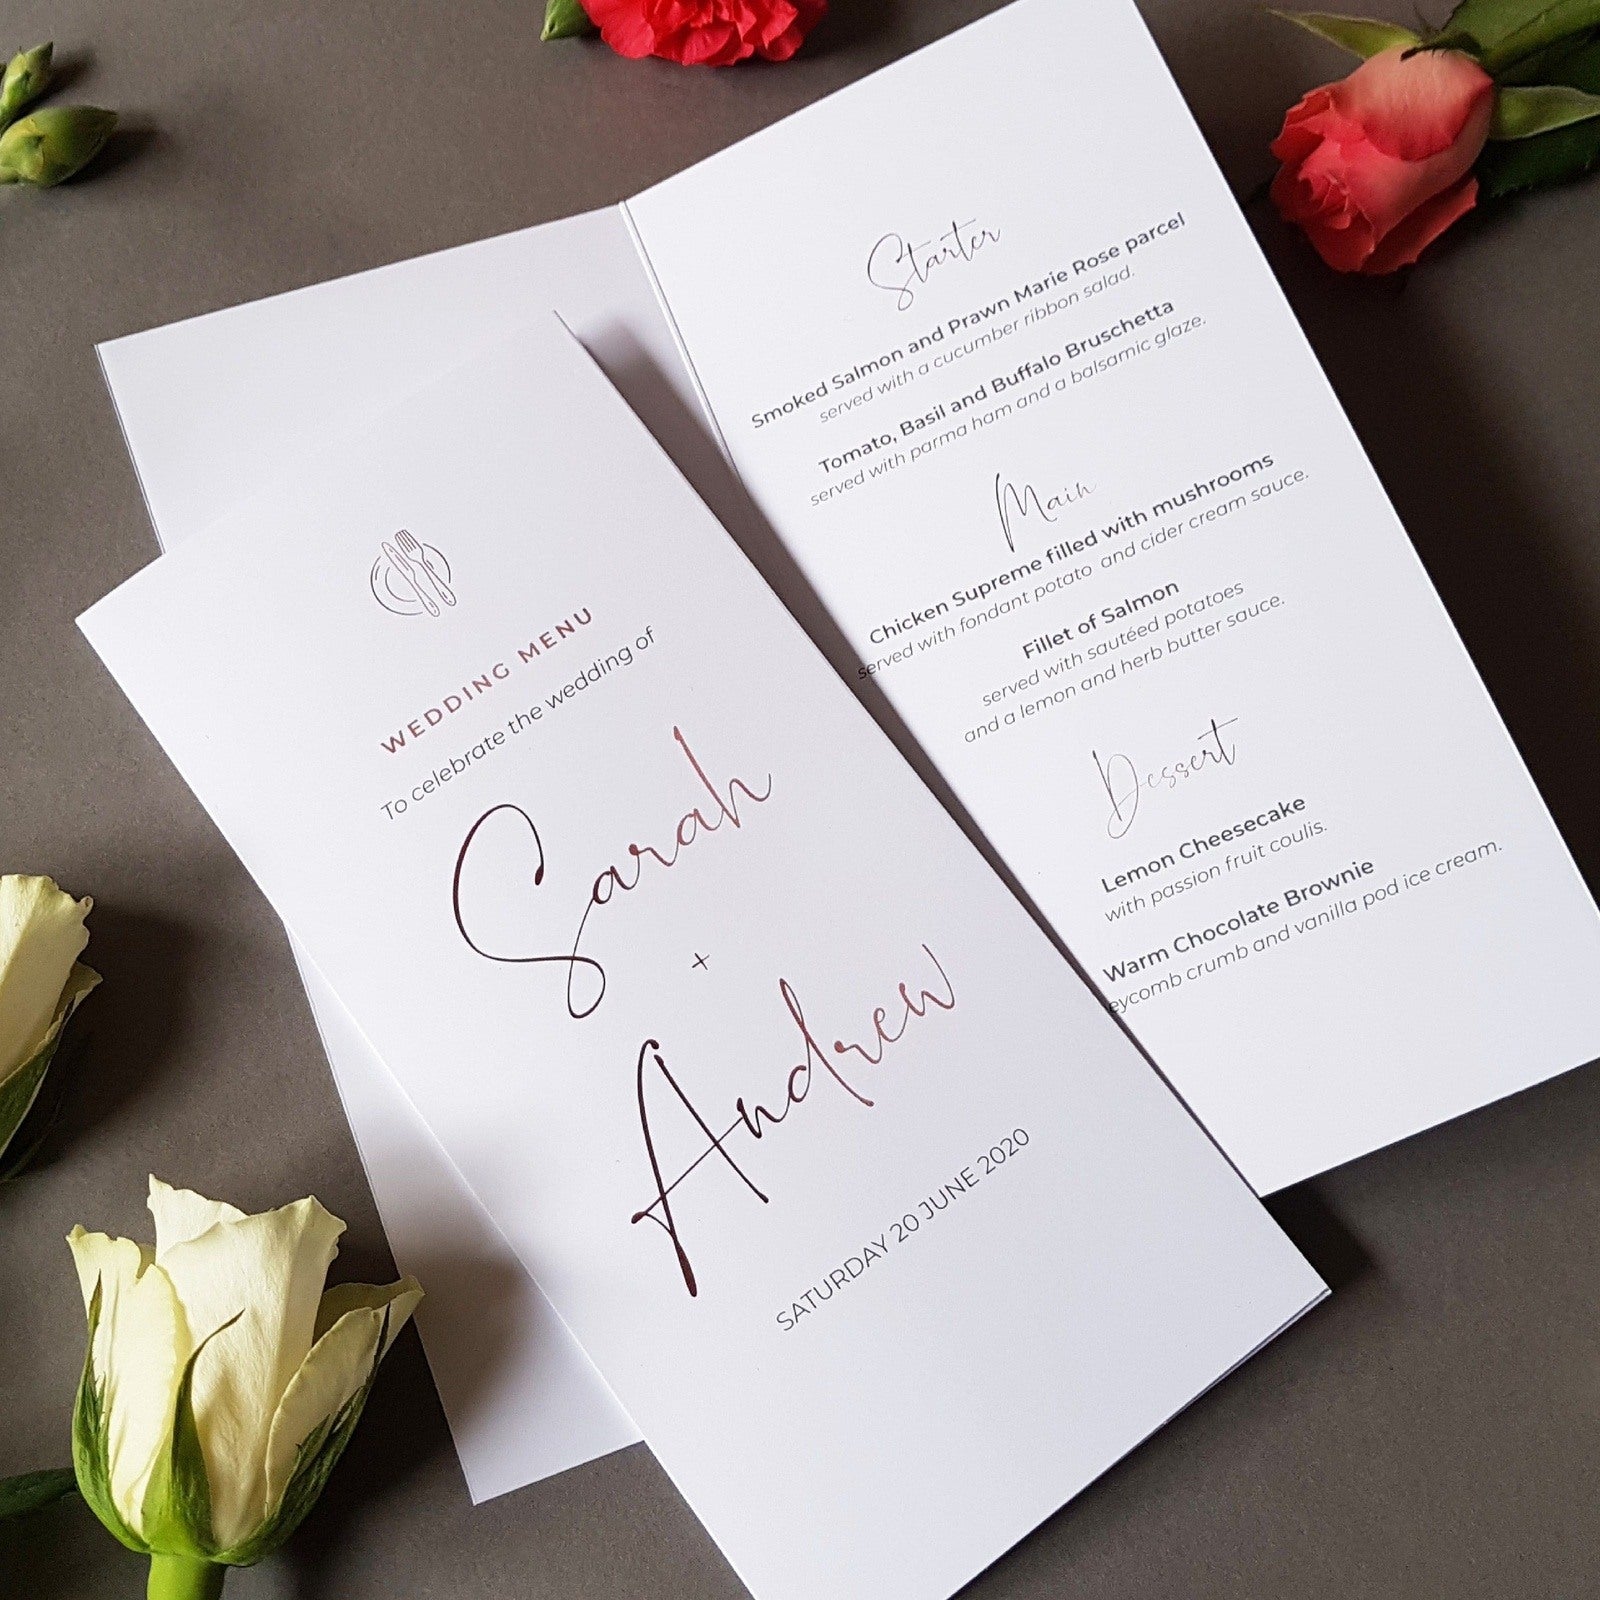 WEDDING MENU
To celebrate the wedding of
Sarah
+
Andrew
SATURDAY 20 JUNE 2020
Starter
Smoked Salmon and Prawn Marie Rose parcel
served with a cucumber ribbon salad.
Tomato, Basil and Buffalo Bruschetta
served with parma ham and a balsamic glaze.
Main
Chicken Supreme filled with mushrooms
served with fondant potato and cider cream sauce.
Fillet of Salmon
served with sautéed potatoes
and a lemon and herb butter sauce.
Dessert
Lemon Cheesecake
with passion fruit coulis.
Warm Chocolate Brownie
crumb and vanilla pod ice cream.